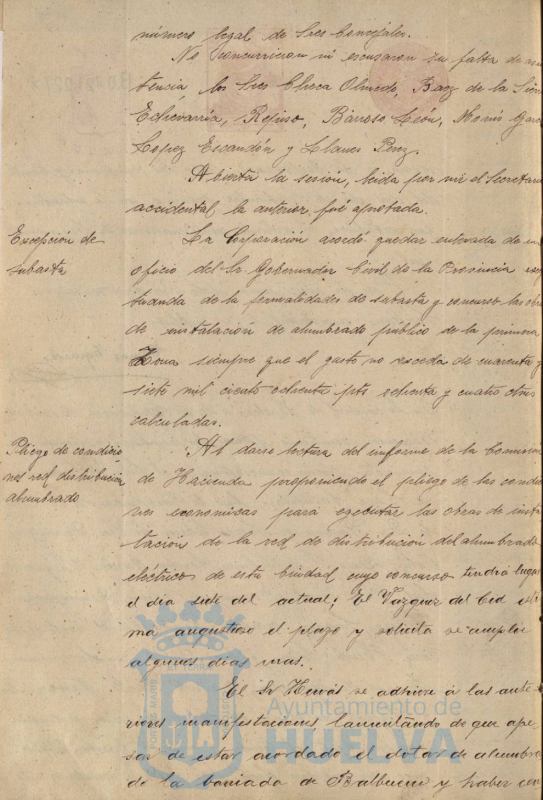 número legal de Sres Concejales.
No concurrieron ni escusaron su falta de asis
tencia los Sres Checa Olmedo, Baez de la
Echevarria, Refujo, Barroso León, García
Lopez Escandón y Llanes Perez.
Abierta la sesión, leida por mi el Secretario
accidental la anterior fué aprobada.
Excepción de
subasta
La Corporación acordó quedar enterada de un
oficio del Sr. Gobernador Civil de la Provincia excep
tuando de la formalidades de subasta y concurso las obras
de instalacion de alumbrado público de la primera
Zona siempre que el gasto no exceda de cuarenta y
siete mil ciento ochenta pts setenta y cuatro ctms
calculadas.
Pliego de condicio
nes red distribución
alumbrado
Al darse lectura del informe de la Comision
de Hacienda proponiendo el pliego de las condicio
nes economicas para ejecutar las obras de insta
lación de la red de distribución del alumbrado
eléctrico de esta Ciudad cuyo concurso tendrá lugar
el dia siete del actual; El Vazquez del Cid esti
ma angustioso el plazo y solicita se amplie
algunos dias mas.
El Sr se adhiere á las ante
riores manifestaciones lamentando de que ape
sar de estar acordado el dotar de alumbra
do la barriada de Balbueno y haber con
Ayuntamiento de
HUELVA